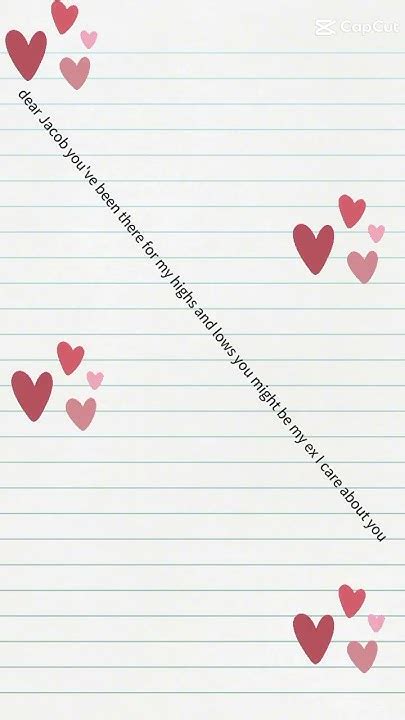 CapCut
dear Jacob you've been there for my highs and lows you might be my ex I care about you